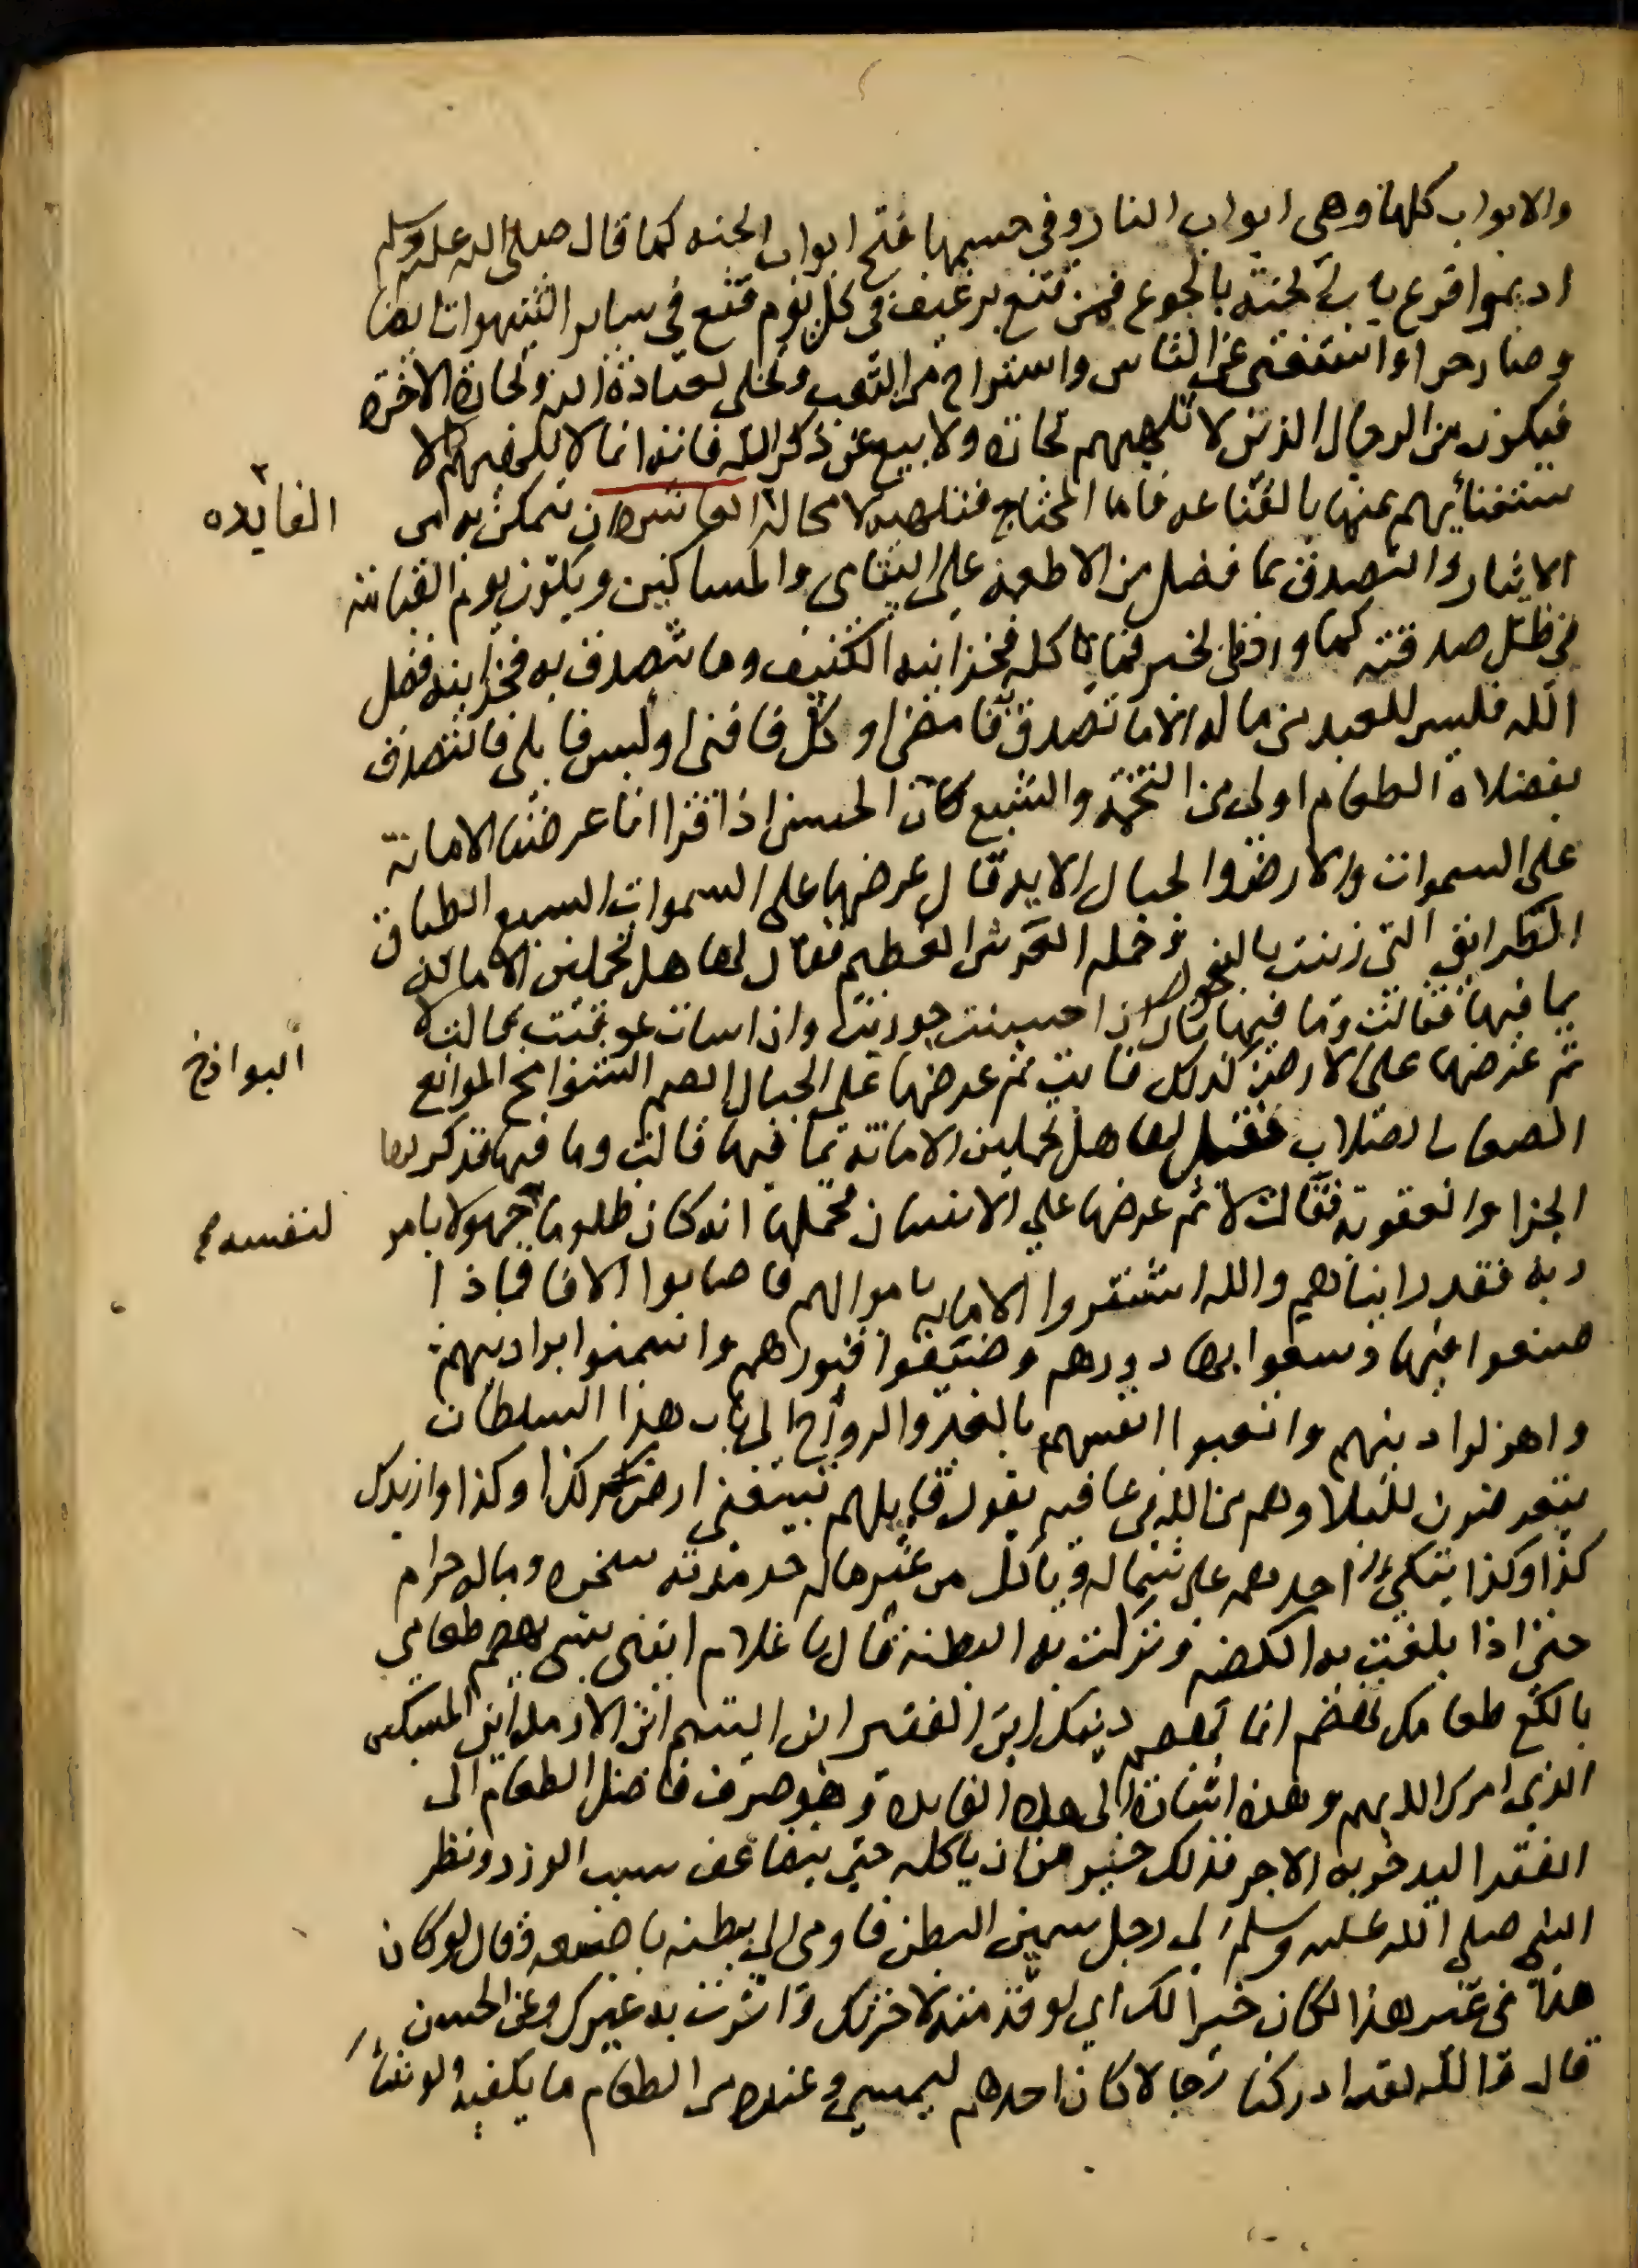 والابواب كلها وهي ابواب النار وفي حسمها فتح ابواب الجنه كما قال صلى الله عليه وسلم
اديموا قرع باب الجنة بالجوع فمن قنع برغيف في كل يوم قنع في ساير الشهوات ايضا
وصار حرا واستغنى عن الناس واستراح من التعب وتخلى لعبادة الله وتجارة الاخرة
فيكون من الرجال الذين لا تلهيهم تجارة ولا بيع عن ذكر الله فانه انما لا تلهيهم الا
ستغنائهم عنها بالقناعه فاما المحتاج فتلهيه لا محالة العاشره ان يتمكن به من
الفايده
الايثار والتصدق بما فضل من الاطعمة على اليتامى والمساكين ويكون يوم القيامة
في ظل صدقته كما ورد في الخبر فما ياكله فخزانته الكنيف وما يتصدق به فخزانته فضل
الله فليس للعبد من ماله الا ما تصدق فامضى او اكل فافنى او لبس فابلى فالتصدق
بفضلات الطعام اولى من التخمة والشبع كان الحسن اذا قرا انا عرضنا الامانة
على السموات والارض والجبال الاية قال عرضها على السموات السبع الطباق
الطرايق التي زينت بالنجوم وحملة العرش العظيم فقال لها هل تحملين الامانة
بما فيها فقالت وما فيها قال ان احسنت جوزيت وان اسات عوقبت فقالت لا
ثم عرضها على الارض كذلك فابت ثم عرضها على الجبال الصم الشوامخ
البواذخ
الصعاب الصلاب فقيل لها هل تحملين الامانة بما فيها قالت وما فيها فذكر لها
الجزا والعقوبة فقالت لا ثم عرضها على الانسان فحملها انه كان ظلوما جهولا بامر
لنفسه
ربه فقد رايناهم والله اشتروا الامانة باموالهم فاصابوا الافا فماذا
صنعوا فيها وسعوا بها دورهم وضيقوا قبورهم واسمنوا براذينهم
واهزلوا دينهم واتعبوا انفسهم بالغدو والرواح الى باب هذا السلطان
يتعرضون للبلا وهم من الله في عافيه يقول قايلهم تبيعني ارض كذا وكذا وازيدك
كذا وكذا يتكئ احدهم على شماله وياكل من غير ماله خدمته سخره وماله حرام
حتى اذا بلغت به الكظه ونزلت به البطنة قال يا غلام ايتني بشي يهضم طعامي
بالكع طعامك تهضم انما تهضم دينك اين الفقير اين اليتيم اين الارملة اين المسكين
الذي امرك الله بهم وهذه اشارة الى هذه الفايدة وهو صرف فاضل الطعام الى
الفقير ليدخر به الاجر فذلك خير من ان ياكله حتى يتضاعف سبب الوزر ونظر
النبي صلى الله عليه وسلم الى رجل سمين البطن فاومى الى بطنه باصبعه وقال لو كان
هذا في غير هذا لكان خيرا لك اي لو قدمته لاخرتك واثرت به غيرك وعن الحسن
قال والله لقد ادركنا رجالا كان احدهم ليمسي وعنده من الطعام ما يكفيه ولو شا